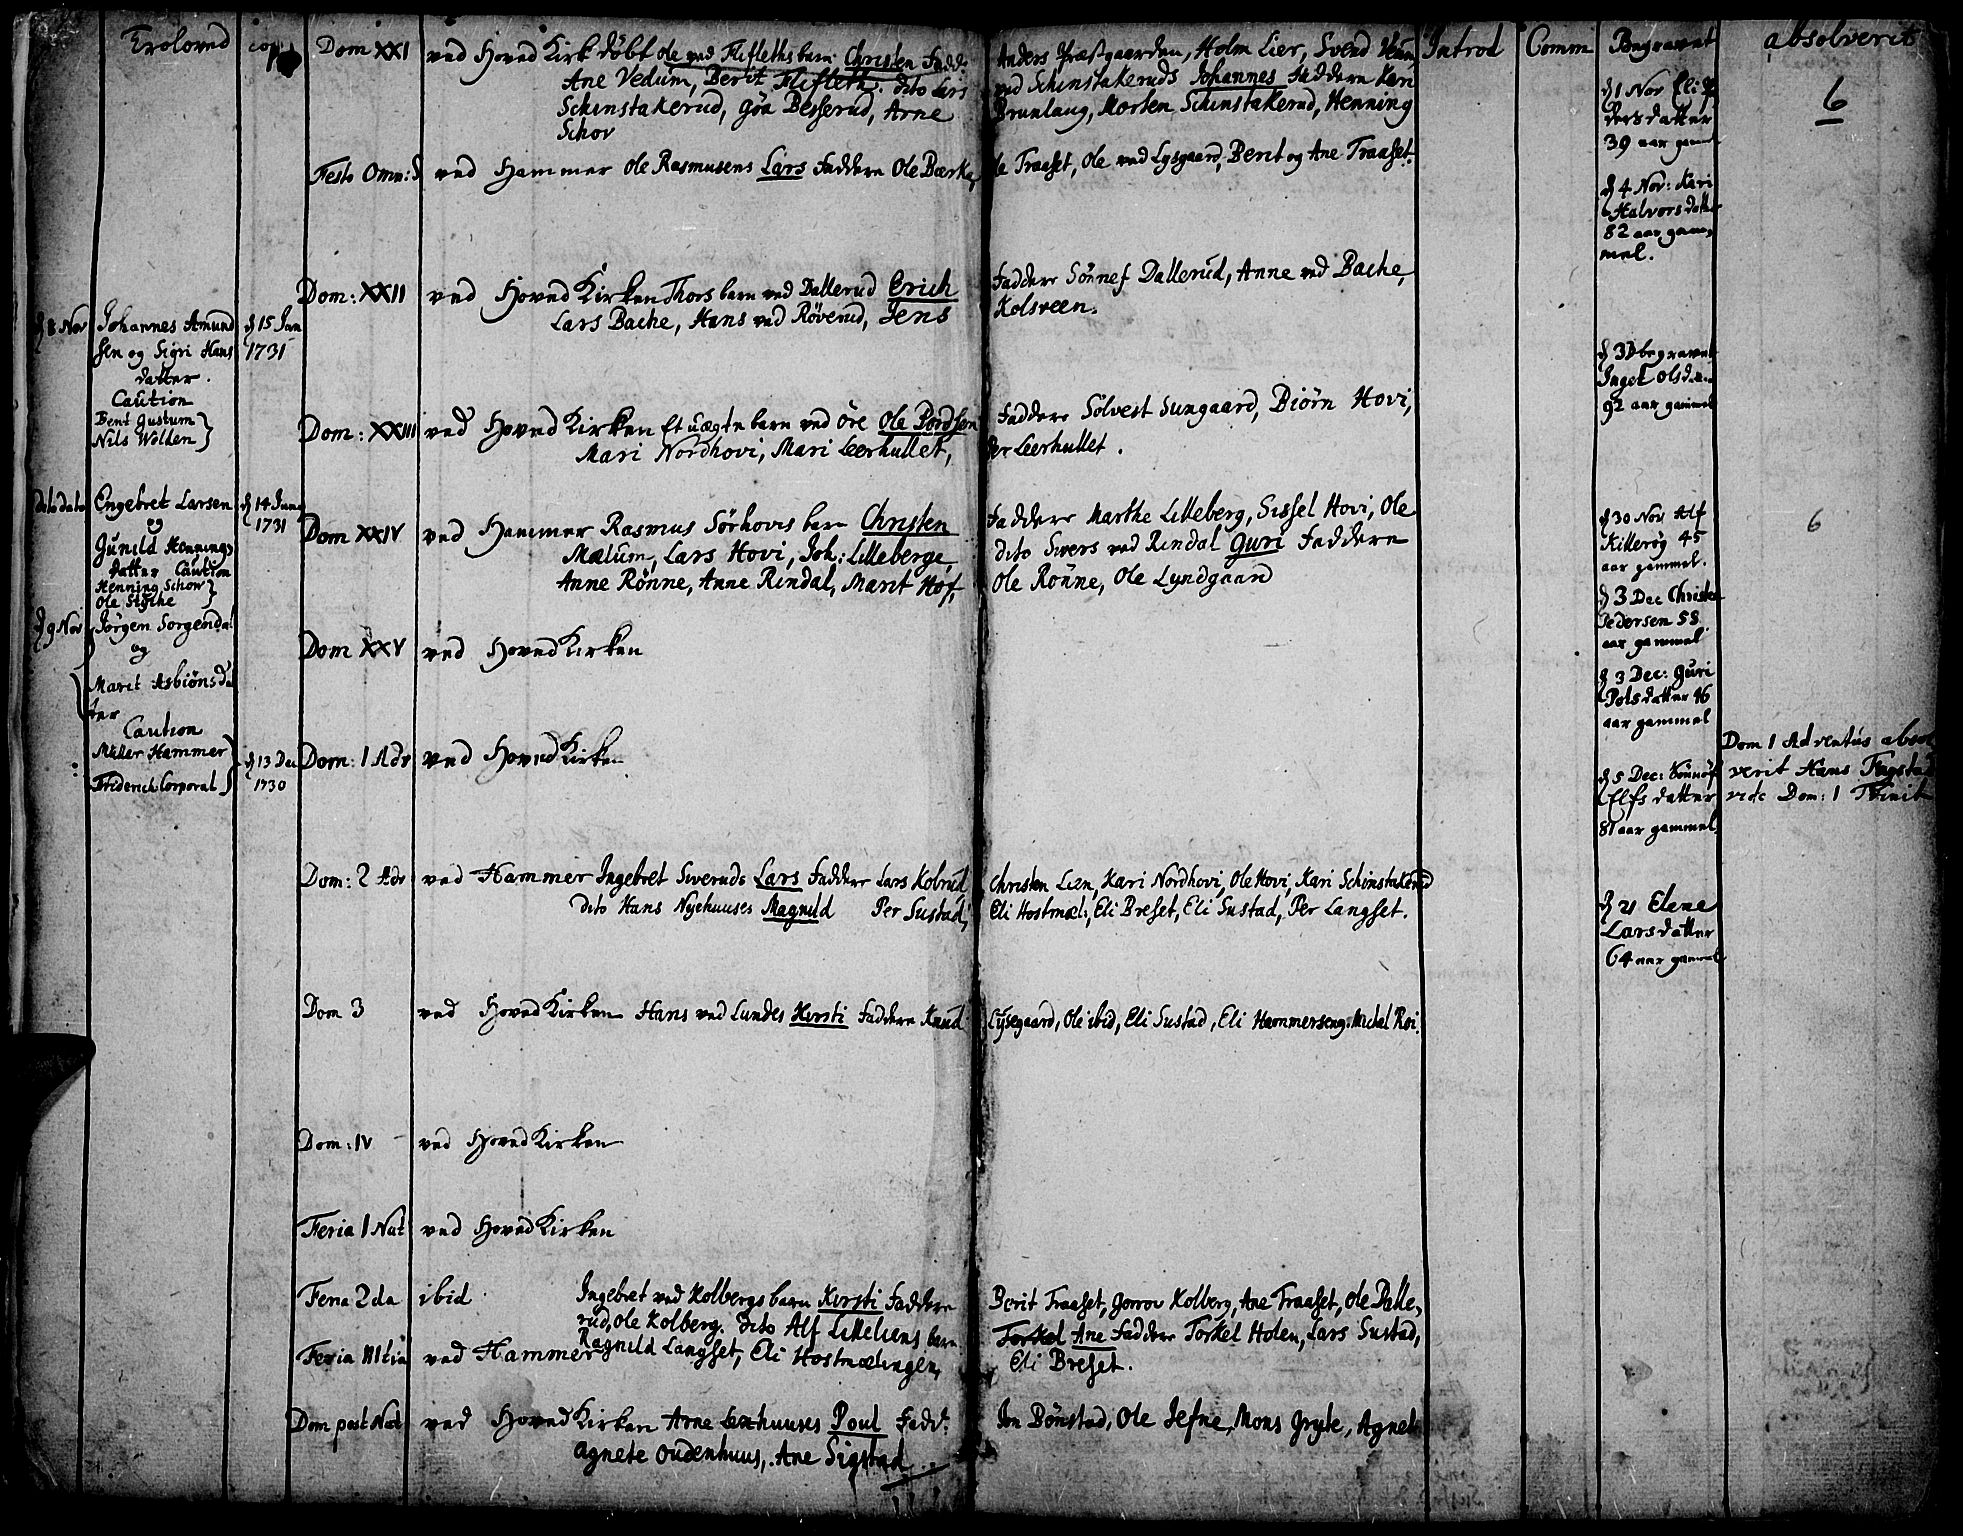 Troloved
cop
Dom XXI
ved Hoved Kirk döbt ole ved Flifleths barn Christen Fadd:
Ane Vedum, Berit Flifleth. dito Lars
Schinstakerud, Göa Besserud, Arne
Schov
Anders Præstgaarden, Holm Lier, Svend
ved Schinstakeruds Johannes Faddere Kari
Brunlaug, Morten Schinstakerud, Henning
Introd
Comm
Begravet
absolverit
6
d 1 Nov Eli
dersdatter
39 aar gam
Festo Omn: S
ved Hammer Ole Rasmusens Lars Faddere Ole Bærke,
Ole Traaset, Ole ved Lysgaard, Berit og Ane Traaset.
d 4 Nov: Kari
Halvorsdatter
82 aar gam,
mel.
Dom: XXII
ved Hoved Kirken Thors barn ved Dallerud Erich
Lars Bache, Hans ved Röverud, Jens
Faddere Sönnef Dallerud, Anne ved Bache,
Kolsveen.
d 8 Nov
Johannes Amund
sen og Sigri Hans
datter.
Caution
Bent Gustum
Nils Wollen
d 15 Jan
1731
begravet
Ingel Olsdatter
92 aar gammel
Dom: XXIII
ved Hoved Kirken Et uægte barn ved öre Ole Pordsen
Mari Nordhovi, Mari Leerhullet,
Faddere Sölvest Sungaard, Biörn Hovi,
Per Leerhullet.
dito dato
Engebret Larsen
og
Gunild Hennings,
datter Caution
Henning Schov
Ole Stythe
d 14 Jan
1731
Dom XXIV
ved Hammer Rasmus Sörhovis barn Christen
Mælum, Lars Hovi, Joh: Lilleberge,
Anne Rönne, Anne Rindal, Marit Hof,
Faddere Marthe Lilleberg, Sissel Hovi, Ole
dito Sivers ved Rindal Guri Faddere
Ole Rönne, Ole Lyndgaard
d 30 Nov Alf
Killeröy 45
aar gammel.
6
d 3 Dec Christen
Pedersen 58
aar gammel
d 9 Nov
Jörgen Sorgendal
og
Marit Asbiönsda
ter
Caution
Müller Hammer
Friderich Corporal
d 13 Dec
1730
Dom XXV
ved Hoved Kirken
d 3 Dec: Guri
Polsdatter 46
aar gammel
Dom: 1 Adv
ved Hoved Kirken
d 5 Dec: Sönnöf
Elfsdatter
81 aar gammel
Dom 1 Adventus absol
verit Hans Fugstad
vide Dom: 1 Trinit
Dom: 2 Adv
ved Hammer Ingebret Siveruds Lars Faddere Lars Kolrud
dito Hans Nyehuuses Magnild Per Sustad,
Christen Lien, Kari Nordhovi, Ole Hovi, Kari Schinstakerud
Eli Hostmæl:, Eli Breset, Eli Sustad, Per Langset.
d 21 Elene
Larsdatter
64 aar gammel
Dom 3
ved Hoved Kirken Hans ved Lundes Kirsti Faddere Knud
Lysegaard, Ole ibid, Eli Sustad, Eli Hammerseng, Michel Roi:
Dom: IV
ved Hoved Kirken
Feria 1 Nat
ved Hoved Kirken
Feria 2da
ibid
Ingebret ved Kolbergs barn Kirsti Faddere
rud, Ole Kolberg. dito Alf Lilleliens barn
Berit Traaset, Gorrov Kolberg, Ane Traaset, Ole Dalle,
Torkel Ane Faddere Torkel Holen, Lars Sustad,
Feria III tia
ved Hammer
Ragnild Langset, Eli Hostmælingen,
Eli Breset.
Dom post Nat
ved Hoved Kirken Arne Lenhuuses Poul Fadd:
Agnete Oudenhuus, Ane Sigstad
Jon Bönstad, Ole Jefne, Mons Gryte, Agnet